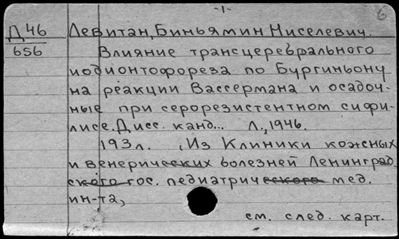 -1-
6
Д 46
656
Левитан, Биньямин Ниселевич.
Влияние трансцеребрального
иодионтофореза по Бургиньону
на реакции Вассермана и осадоч-
ные при серорезистентном сифи-
лисе. Дисс. канд... Л., 1946.
193 л. (Из Клиники кожных
и венерических болезней Ленинград
ского гос. педиатрического мед.
ин-та,
см. след. карт.